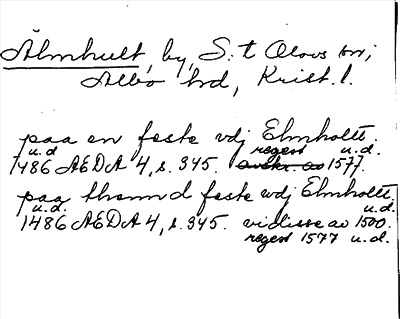 Älmhult, by, S:t Olovs sn;
Albo hd, Krist. l.
paa en feste vdj Elmholtt.
u.d. regest u.d.
1486 ÆDA 4, s. 345. avskr. av 1577.
paa thennd feste vdj Elmholtt.
u.d. u.d.
1486 ÆDA 4, s. 345. vidisse av 1500.
regest 1577 u.d.